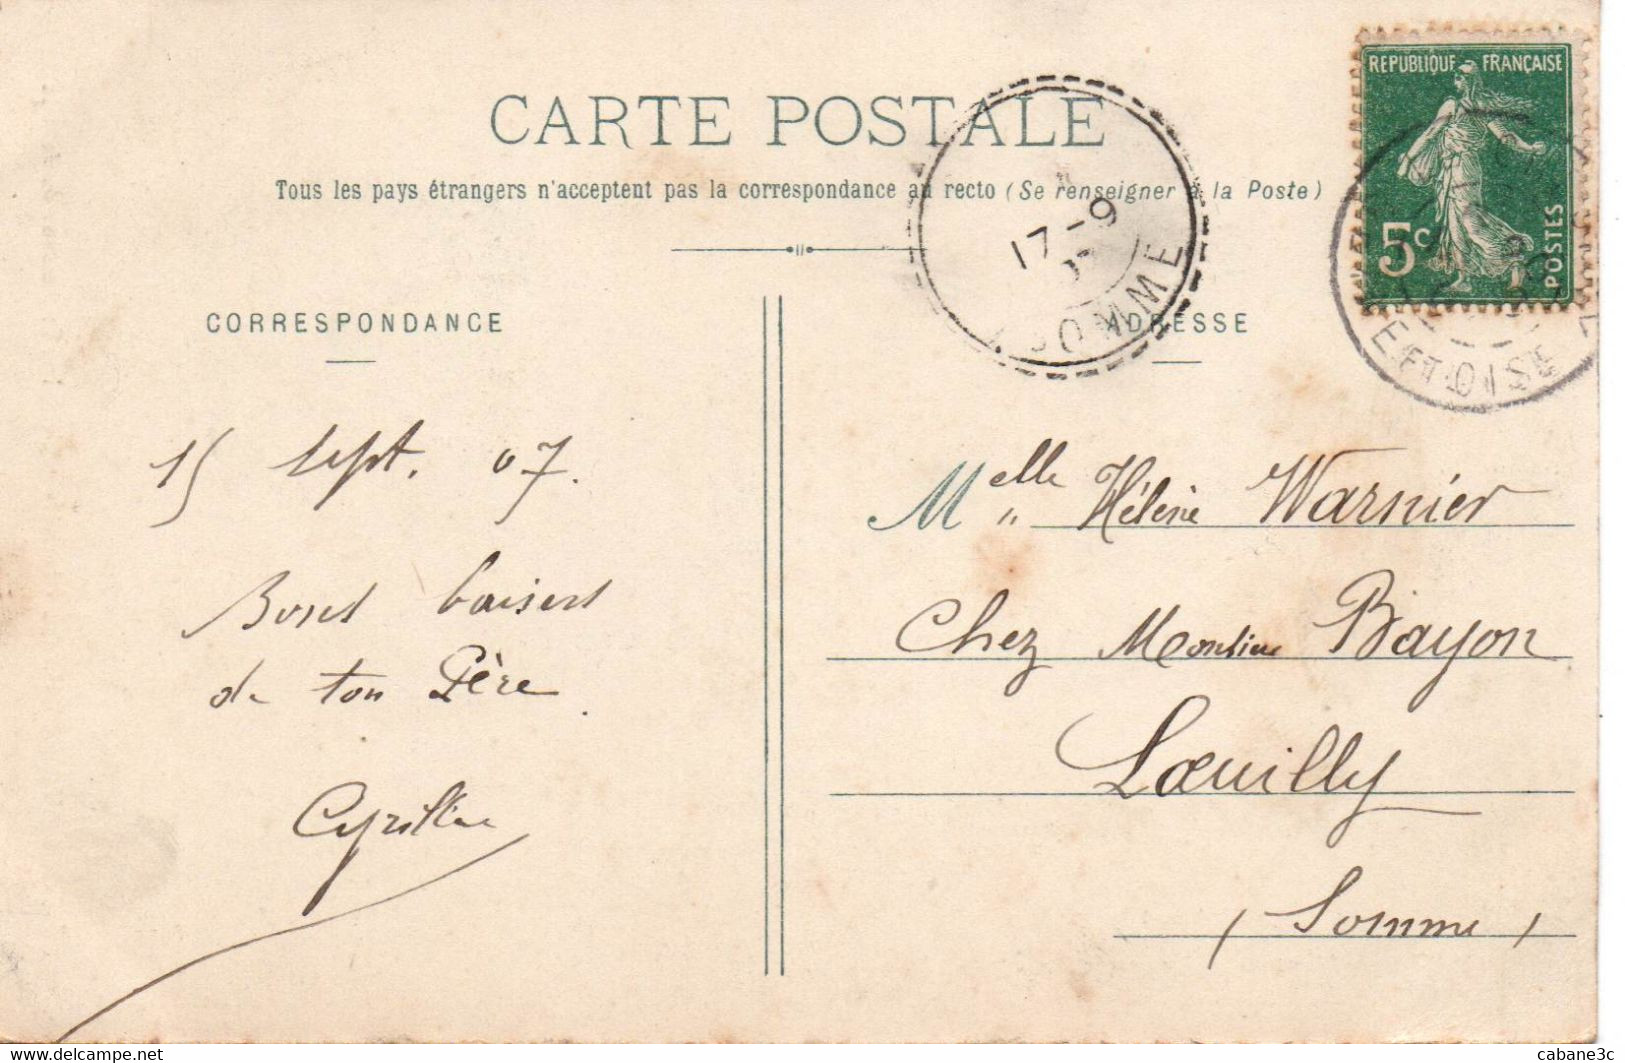 CARTE POSTALE
Tous les pays étrangers n'acceptent pas la correspondance au recto (Se renseigner à la Poste)
RÉPUBLIQUE FRANÇAISE
5c
POSTES
17-9
07
SOMME
ET OISE
CORRESPONDANCE
15 Sept. 07.
Bons baisers
de ton Père.
Cyrille
ADRESSE
Melle Hélène Warnier
Chez Monsieur Bayon
Lœuilly
(Somme)
www.delcampe.net
cabane3c